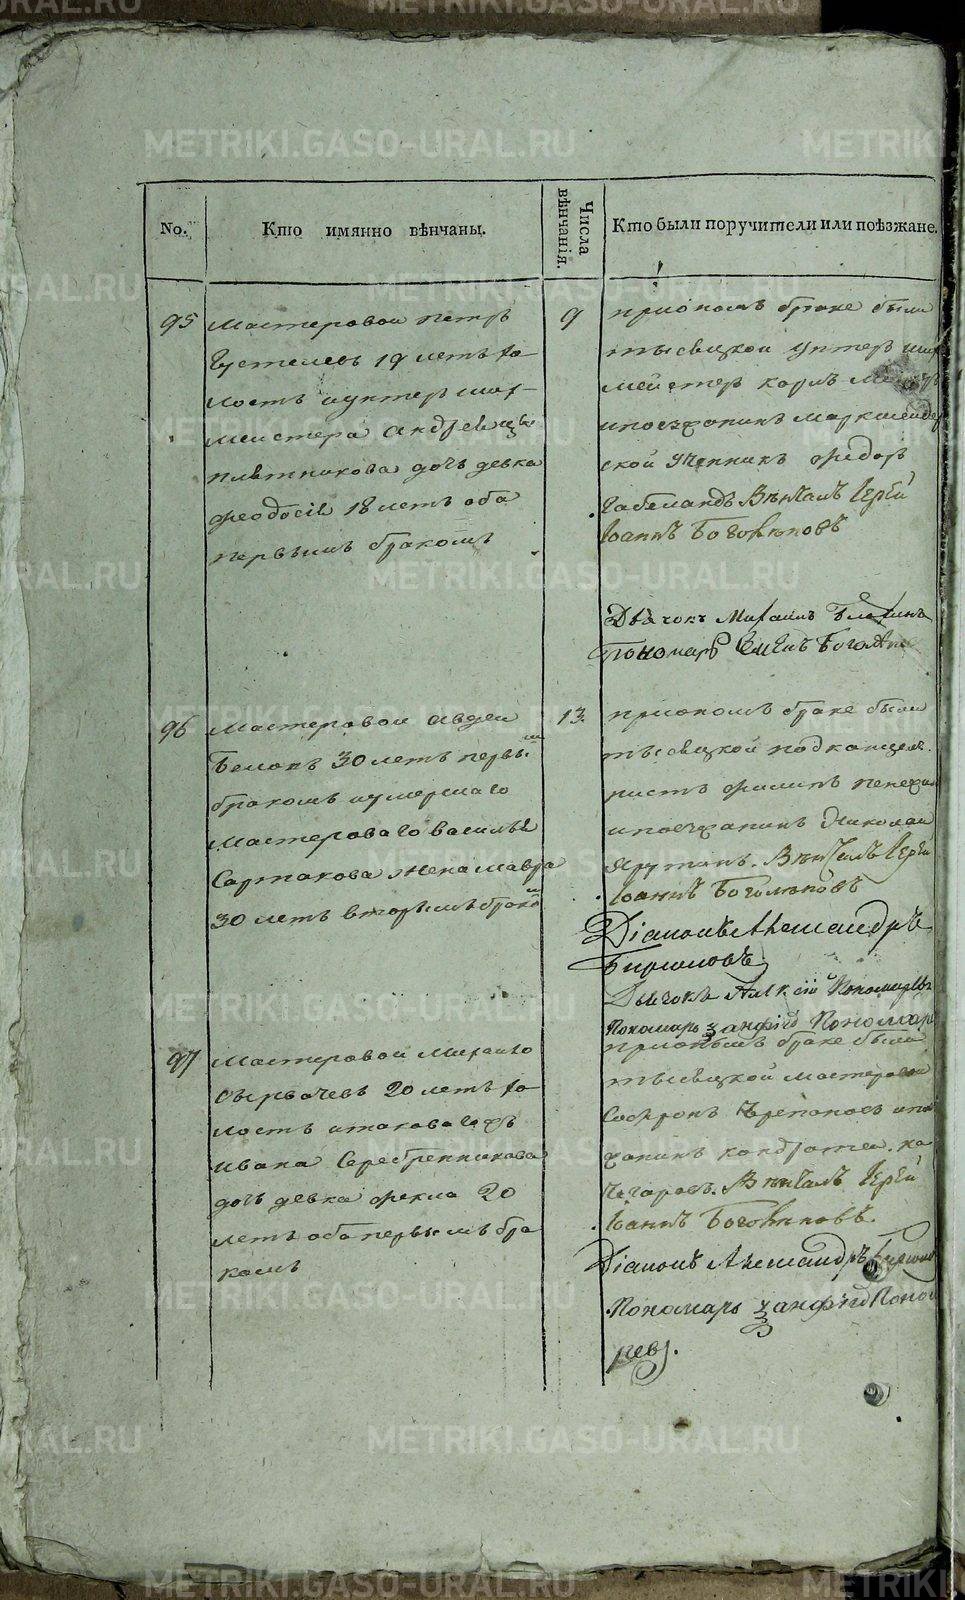 No.
Кто имянно вѣнчаны.
Числа вѣнчанія.
Кто были поручители или поѣзжане.
95
мастеровои петръ
19 летъ хо
лостъ иунтеръ шах-
меистера андрея
плотникова дочь девка
феодосiя 18 летъ оба
первымъ бракомъ
9
приономъ браке были
тысяцкои унтеръ шах
мейстеръ карлъ
ипоезжанинъ маркшейдер
ской ученикъ федоръ
Вѣнчалъ Іерей
Іоаннъ Боголюповъ
Дьячокъ Михаилъ
Пономарь Семенъ
96
мастеровои авдеи
Беловъ 30 летъ первы
бракомъ иумершаго
мастероваго василья
Сартакова жена мавра
30 летъ вторымъ брако
13.
приономъ браке были
тысяцкой подканцеля
ристъ филипъ
ипоезжанинъ николаи
Вѣнчалъ Іерей
Іоаннъ Боголюповъ
Діаконъ Александръ
Бирюковъ
Дьячокъ Алексiй Пономаревъ
Пономарь занфиръ Пономаре
97
мастеровои михаило
20 летъ хо
лостъ итаковагожъ
ивана Серебренникова
дочь девка фекла 20
летъ оба первымъ бра
комъ
приономъ браке были
тысяцкой мастеровои
Софронъ Черепановъ ипое
жанинъ кондратеи ка
чегаровъ. Вѣнчалъ Іерей
Іоаннъ Боголюповъ.
Діаконъ Александръ Бирюков
Пономарь занфиръ Поном
ревъ.
METRIKI.GASO-URAL.RU